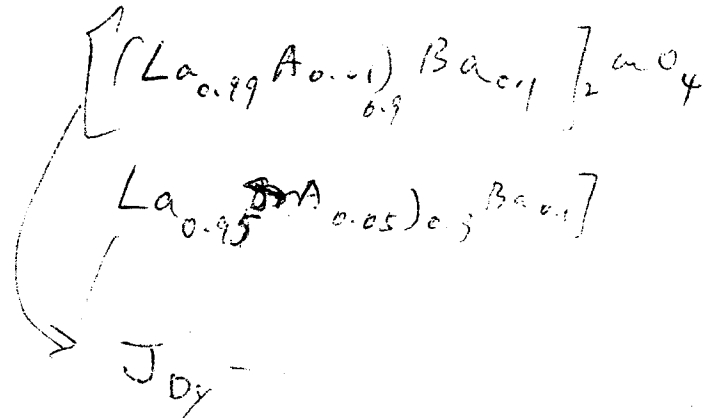 [(La0.99 A0.01)0.9 Ba0.1]2 CuO4
La0.95 A0.05)0.9 Ba0.1]
JDy -